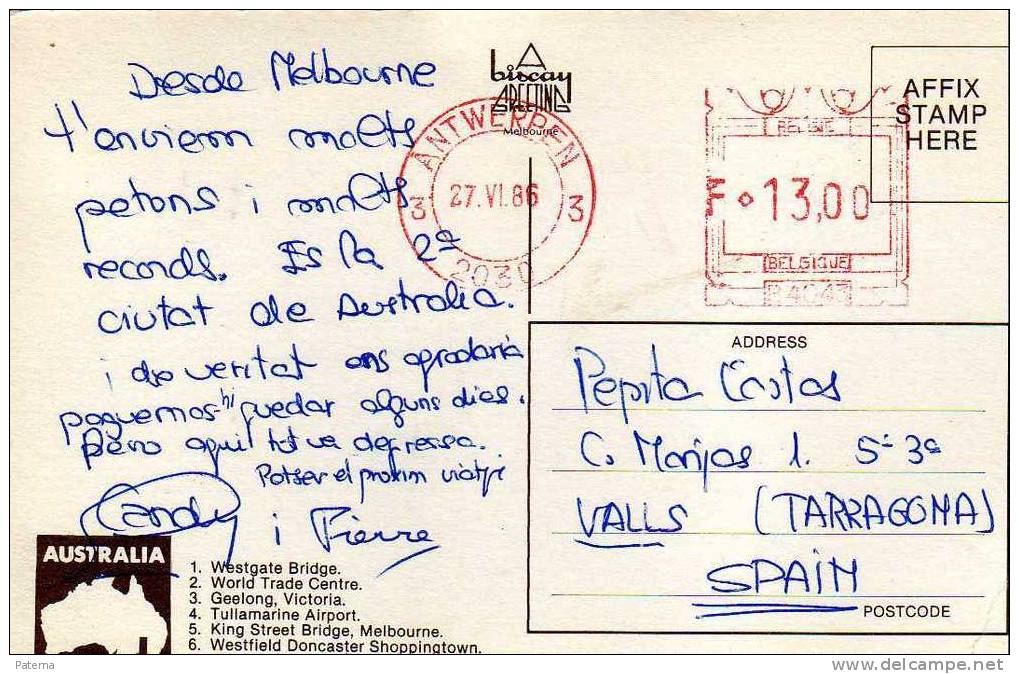 Desde Melbourne
t'enviem molts
petons i molts
records. Es la 2ª
ciutat de Australia.
i de veritat ens agradaria
poguemos-hi quedar alguns dies.
Pero aqui tot va depressa.
Potser el proxim viatje
Candy i Pierre
A
biscay
GREETING
Melbourne
ANTWERPEN
3 27.VI.86 3
2030
BELGIE
F 13,00
BELGIQUE
P.4043
AFFIX
STAMP
HERE
ADDRESS
Pepita Castas
C. Monjas 1. 5-3ª
VALLS (TARRAGONA)
SPAIN
POSTCODE
AUSTRALIA
1. Westgate Bridge.
2. World Trade Centre.
3. Geelong, Victoria.
4. Tullamarine Airport.
5. King Street Bridge, Melbourne.
6. Westfield Doncaster Shoppingtown.
Paterna
www.delcampe.net